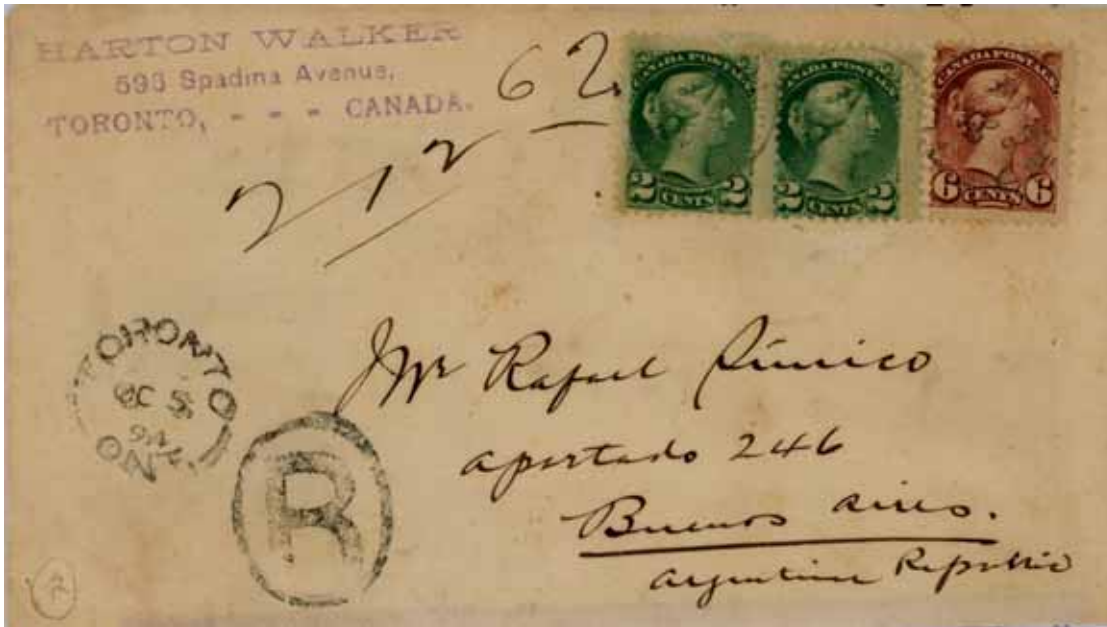 HARTON WALKER
593 Spadina Avenue,
TORONTO, - - - CANADA.
62
212
CANADA POSTAGE
2 CENTS 2
CANADA POSTAGE
2 CENTS 2
CANADA POSTAGE
6 CENTS 6
TORONTO
OC 5
94
ONT
R
Mr Rafael
Apartado 246
Buenos Aires.
Argentine Republic